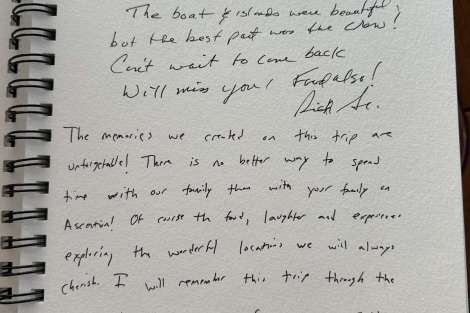 The boat & islands were beautiful,
but the best part was the crew!
Can't wait to come back
Will miss you! Food also!
Rich Sr.
The memories we created on this trip are
unforgetable! There is no better way to spend
time with our family than with your family on
Ascension! Of course th food, laughter and experiences
exploring the wonderful locations we will always
cherish. I will remember this trip through the